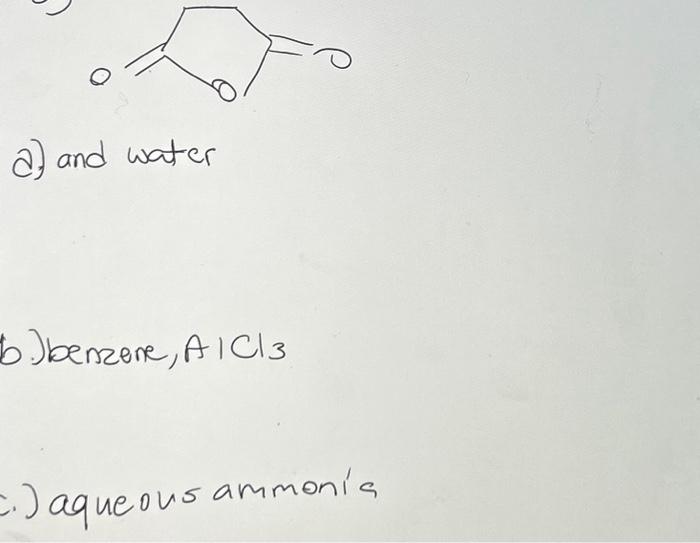 O
O
O
a) and water
b.) benzene, AlCl3
c.) aqueous ammonia